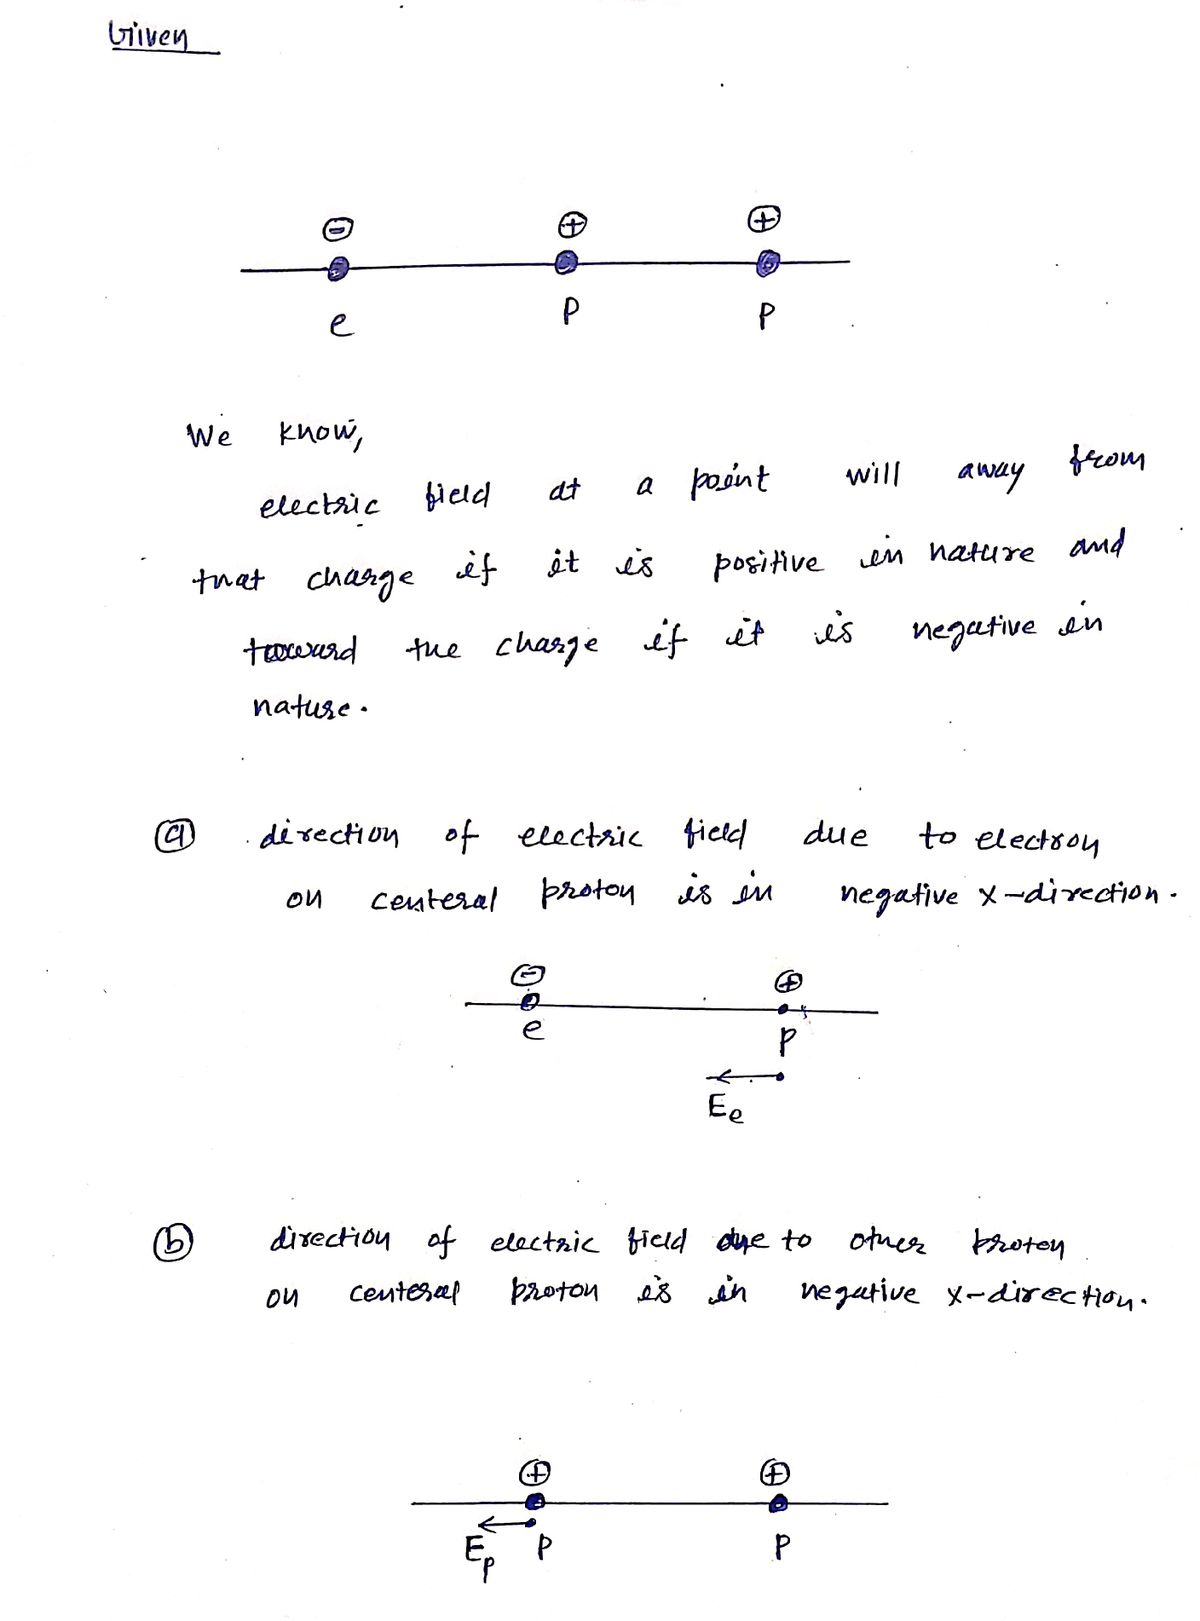 Given
⊖ ⊕ ⊕
e P P
We know,
electric field at a point will away from
that charge if it is positive in nature and
toward the charge if it is negative in
nature.
ⓐ direction of electric field due to electron
on centeral proton is in negative x-direction.
⊖ ⊕
e P
Ee
ⓑ direction of electric field due to other proton
on centeral proton is in negative x-direction.
⊕ ⊕
Ep P P